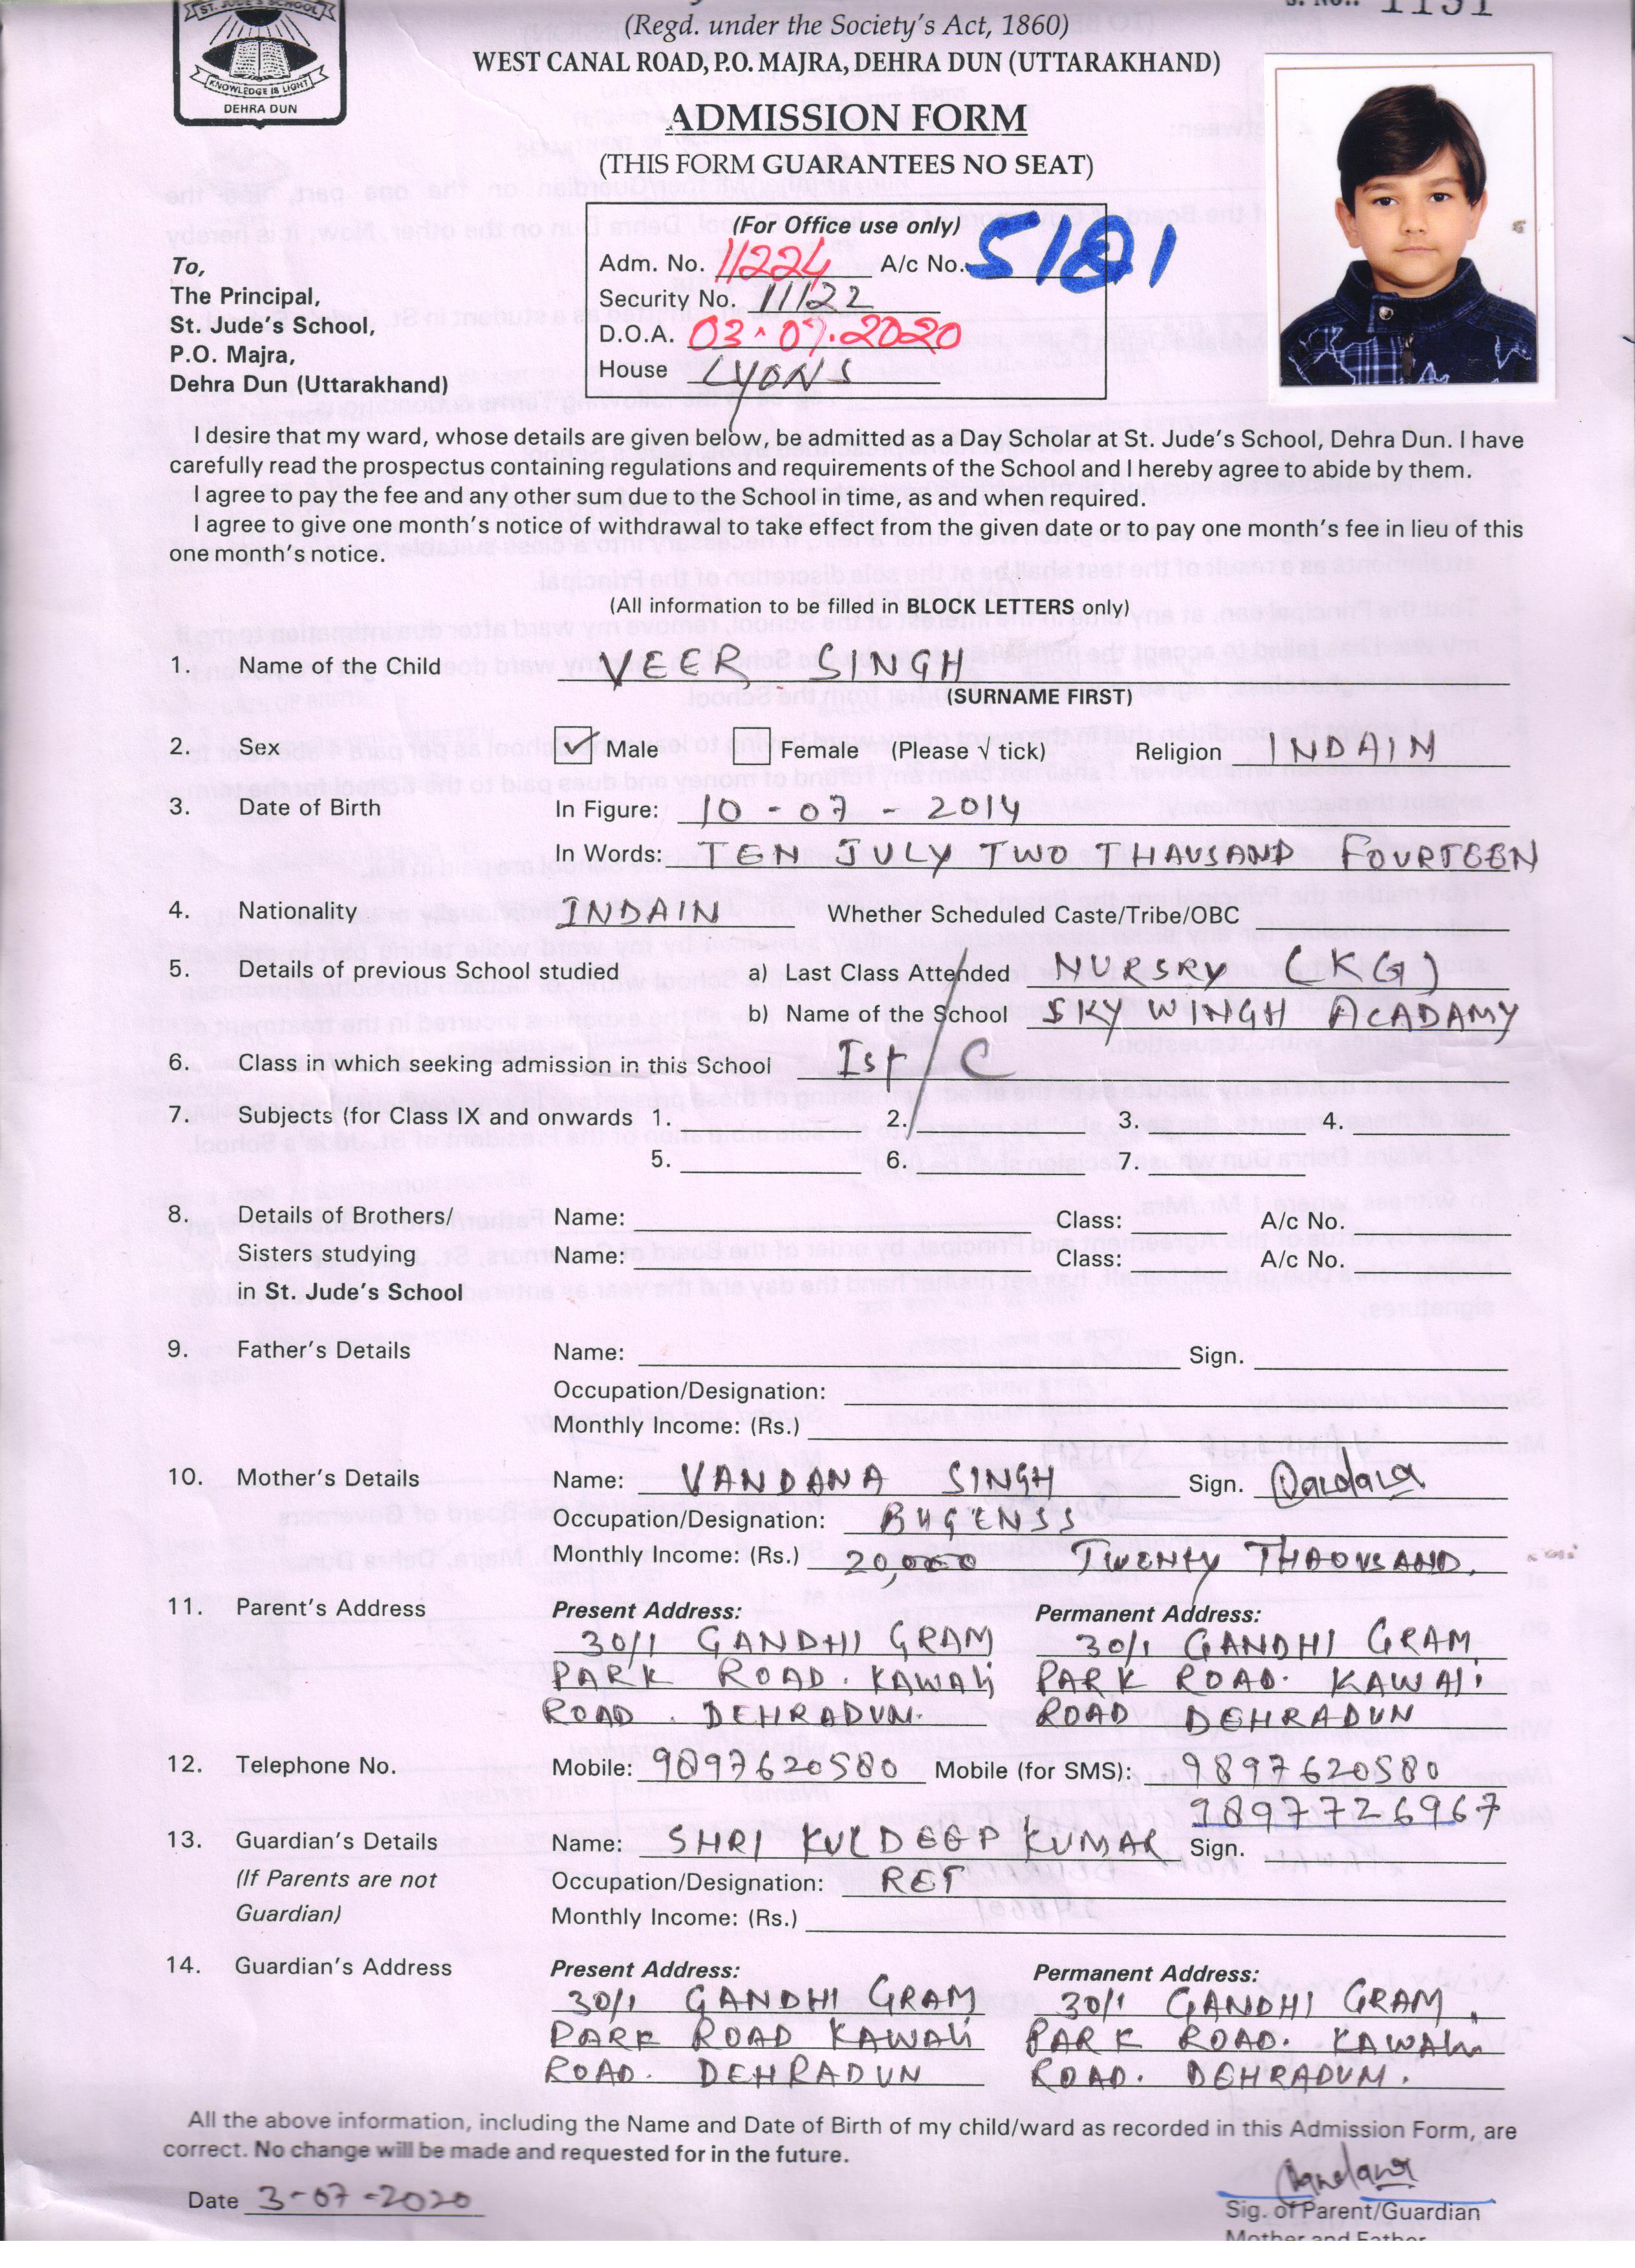 ST. JUDE'S SCHOOL
KNOWLEDGE IS LIGHT
DEHRA DUN
(Regd. under the Society's Act, 1860)
WEST CANAL ROAD, P.O. MAJRA, DEHRA DUN (UTTARAKHAND)
ADMISSION FORM
(THIS FORM GUARANTEES NO SEAT)
(For Office use only)
Adm. No. 11224 A/c No. 5181
Security No. 11122
D.O.A. 03.07.2020
House LYONS
To,
The Principal,
St. Jude's School,
P.O. Majra,
Dehra Dun (Uttarakhand)
I desire that my ward, whose details are given below, be admitted as a Day Scholar at St. Jude's School, Dehra Dun. I have
carefully read the prospectus containing regulations and requirements of the School and I hereby agree to abide by them.
I agree to pay the fee and any other sum due to the School in time, as and when required.
I agree to give one month's notice of withdrawal to take effect from the given date or to pay one month's fee in lieu of this
one month's notice.
(All information to be filled in BLOCK LETTERS only)
1. Name of the Child VEER SINGH
(SURNAME FIRST)
2. Sex ✓ Male Female (Please √ tick) Religion INDAIN
3. Date of Birth In Figure: 10 - 07 - 2014
In Words: TEN JULY TWO THAUSAND FOURTEEN
4. Nationality INDAIN Whether Scheduled Caste/Tribe/OBC
5. Details of previous School studied a) Last Class Attended NURSRY (KG)
b) Name of the School SKY WINGH ACADAMY
6. Class in which seeking admission in this School Ist / C
7. Subjects (for Class IX and onwards 1. 2. 3. 4.
5. 6. 7.
8. Details of Brothers/ Name: Class: A/c No.
Sisters studying Name: Class: A/c No.
in St. Jude's School
9. Father's Details Name: Sign.
Occupation/Designation:
Monthly Income: (Rs.)
10. Mother's Details Name: VANDANA SINGH Sign. Vandana
Occupation/Designation: BUGENSS
Monthly Income: (Rs.) 20,000 TWENTY THAOUSAND.
11. Parent's Address Present Address: Permanent Address:
30/1 GANDHI GRAM 30/1 GANDHI GRAM,
PARK ROAD. KAWALI PARK ROAD. KAWALI
ROAD. DEHRADUN. ROAD DEHRADUN
12. Telephone No. Mobile: 9897620580 Mobile (for SMS): 9897620580
9897726967
13. Guardian's Details Name: SHRI KULDEEP KUMAR Sign.
(If Parents are not Occupation/Designation: RET
Guardian) Monthly Income: (Rs.)
14. Guardian's Address Present Address: Permanent Address:
30/1 GANDHI GRAM 30/1 GANDHI GRAM,
PARK ROAD KAWALI PARK ROAD. KAWALI
ROAD. DEHRADUN ROAD. DEHRADUN.
All the above information, including the Name and Date of Birth of my child/ward as recorded in this Admission Form, are
correct. No change will be made and requested for in the future.
Vandana
Date 3-07-2020
Sig. of Parent/Guardian
Mother and Father